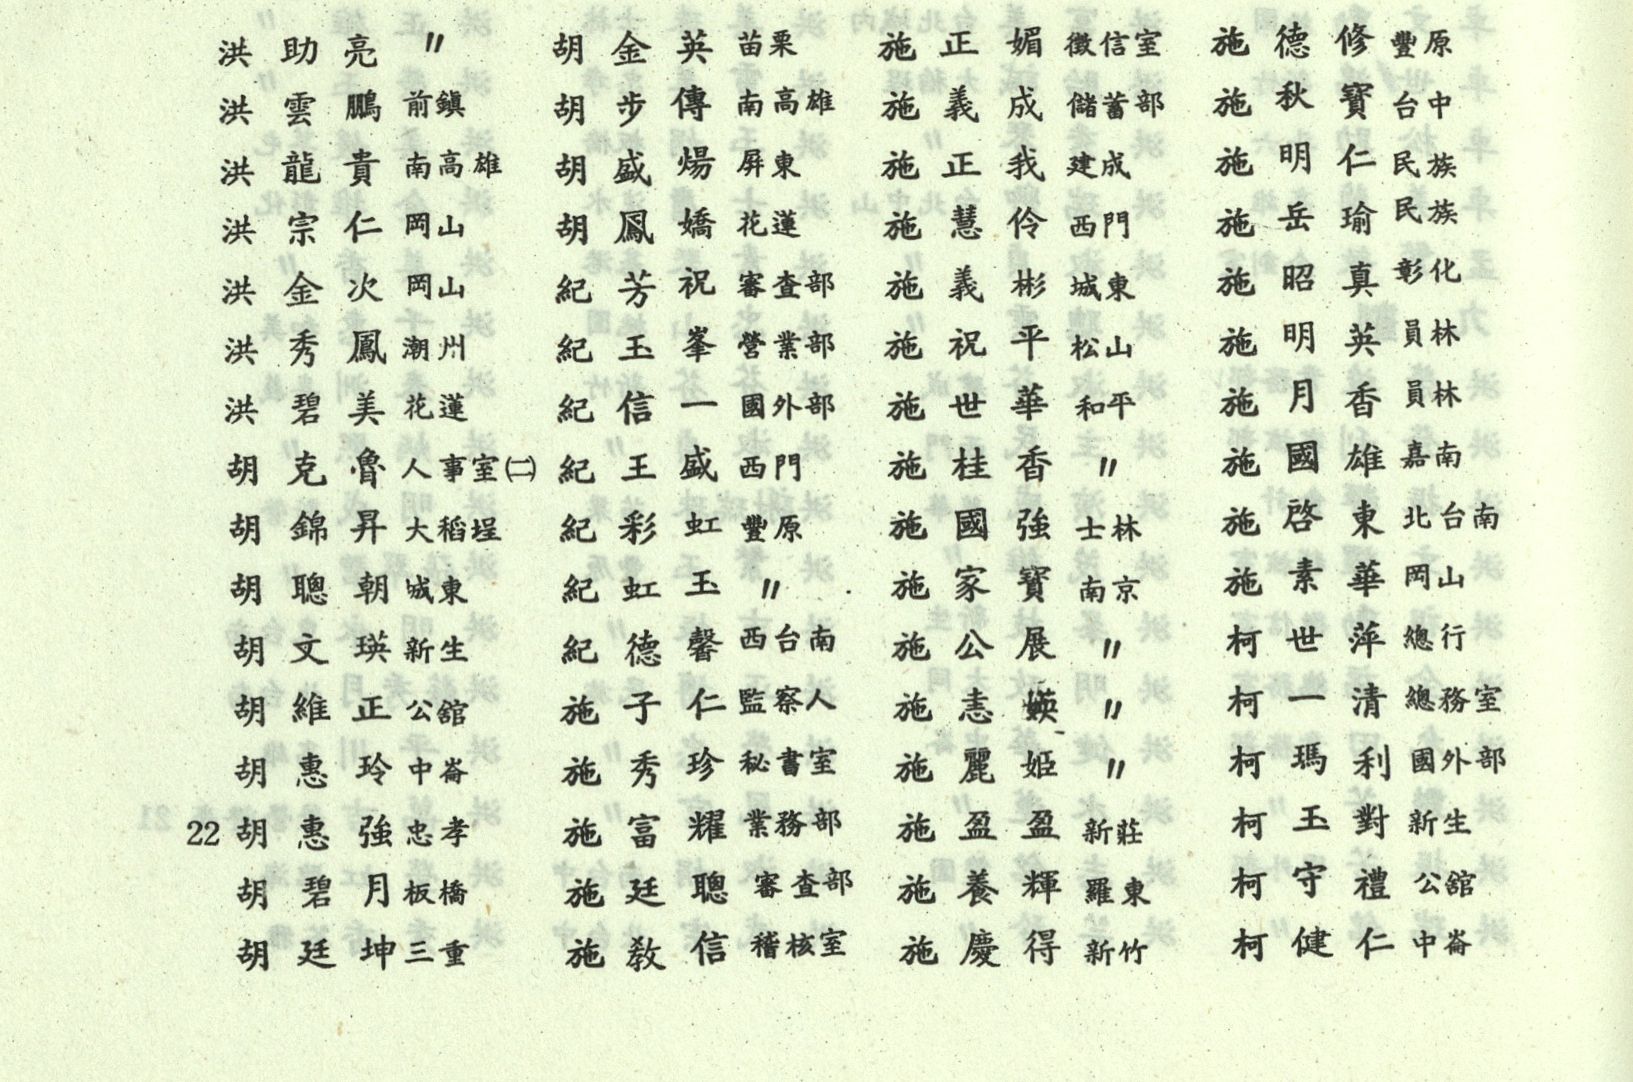 洪助亮 〃
洪雲鵬 前鎮
洪龍貴 南高雄
洪宗仁 岡山
洪金次 岡山
洪秀鳳 潮州
洪碧美 花蓮
胡克魯 人事室㈡
胡錦昇 大稻埕
胡聰朝 城東
胡文瑛 新生
胡維正 公舘
胡惠玲 中崙
胡惠強 忠孝
胡碧月 板橋
胡廷坤 三重
胡金英 苗栗
胡步傳 南高雄
胡盛煬 屏東
胡鳳嬌 花蓮
紀芳祝 審查部
紀玉峯 營業部
紀信一 國外部
紀王盛 西門
紀彩虹 豐原
紀虹玉 〃
紀德馨 西台南
施子仁 監察人
施秀珍 秘書室
施富耀 業務部
施廷聰 審查部
施教信 稽核室
施正媚 徵信室
施義成 儲蓄部
施正我 建成
施慧伶 西門
施義彬 城東
施祝平 松山
施世華 和平
施桂香 〃
施國強 士林
施家寶 南京
施公展 〃
施恚 〃
施麗姬 〃
施盈盈 新莊
施養輝 羅東
施慶得 新竹
施德修 豐原
施秋寶 台中
施明仁 民族
施岳瑜 民族
施昭真 彰化
施明英 員林
施月香 員林
施國雄 嘉南
施啓東 北台南
施素華 岡山
柯世萍 總行
柯一清 總務室
柯瑪利 國外部
柯玉對 新生
柯守禮 公舘
柯健仁 中崙
22